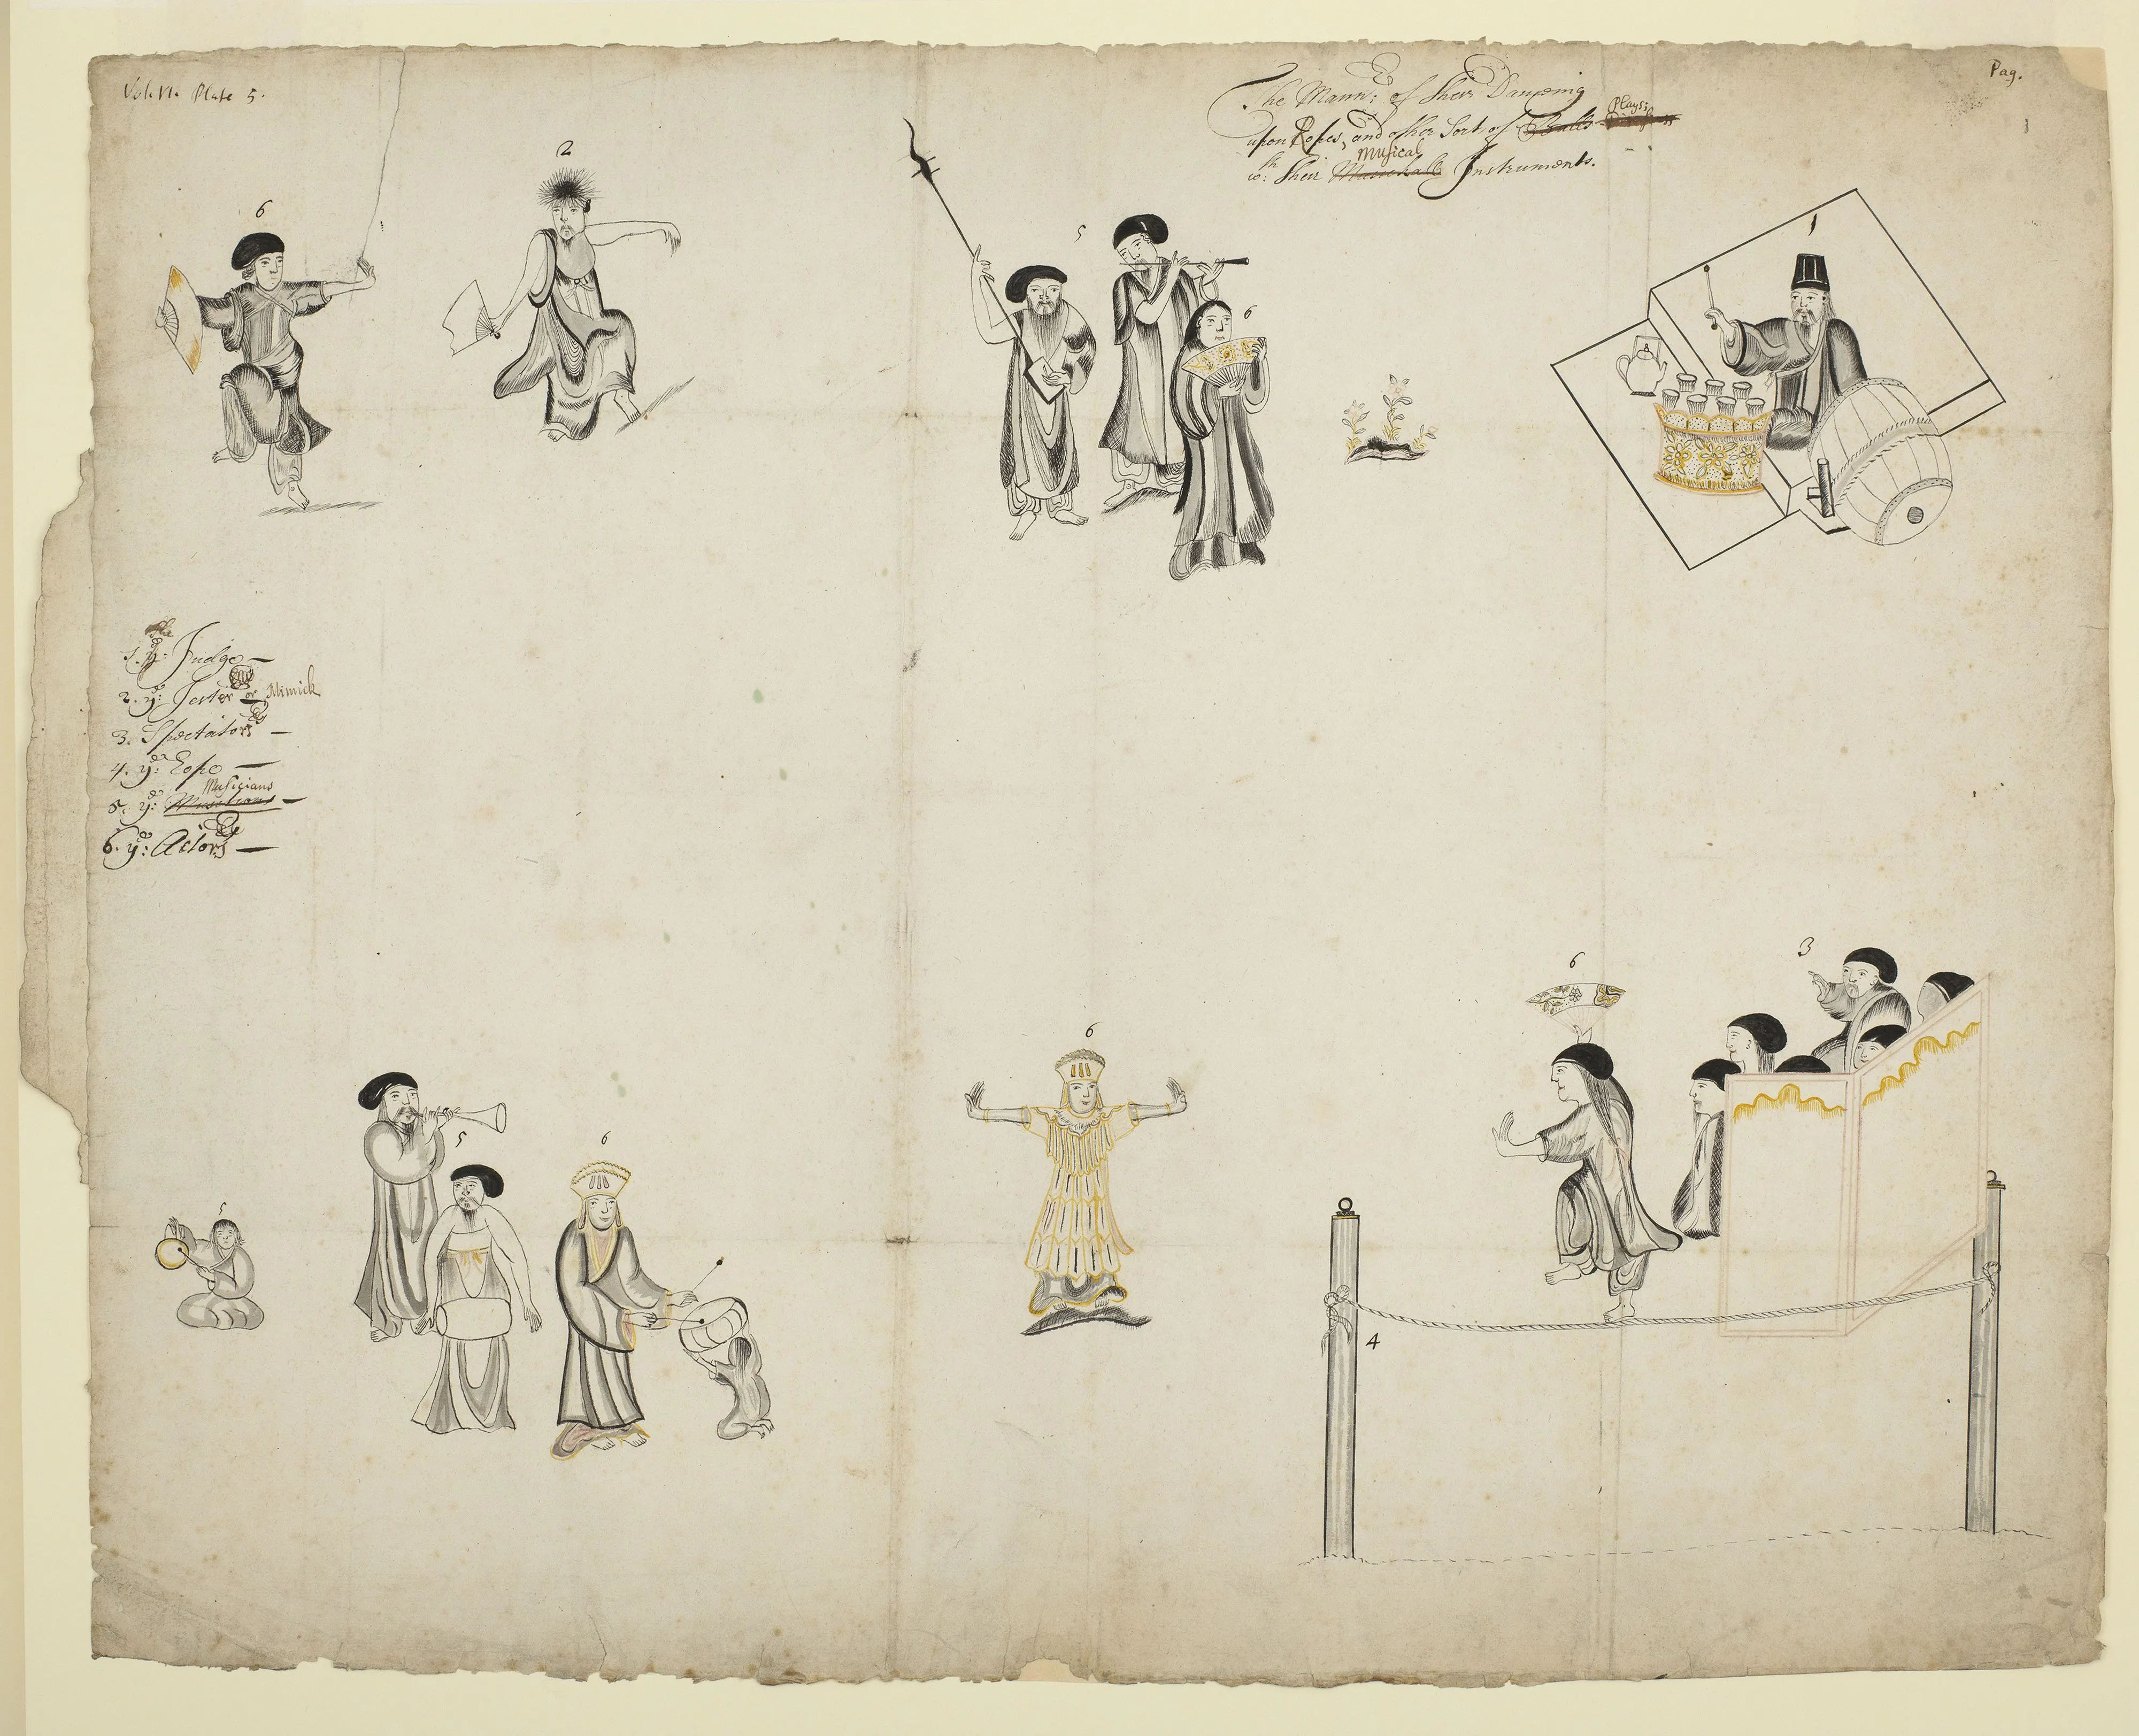 Vol: VI. Plate 5.
Pag.
The Mann: of their Dancing
Plays:
upon Ropes, and other Sort of Balls
Musical
wth: their Musicall Instruments.
6
2
5
6
1
The
1. ye: Judge —
2. ye: Jester or Mimick
3. Spectators —
4. ye: Rope —
Musicians
5. ye: Musitians —
6. ye: Actors —
3
6
6
5
6
5
4